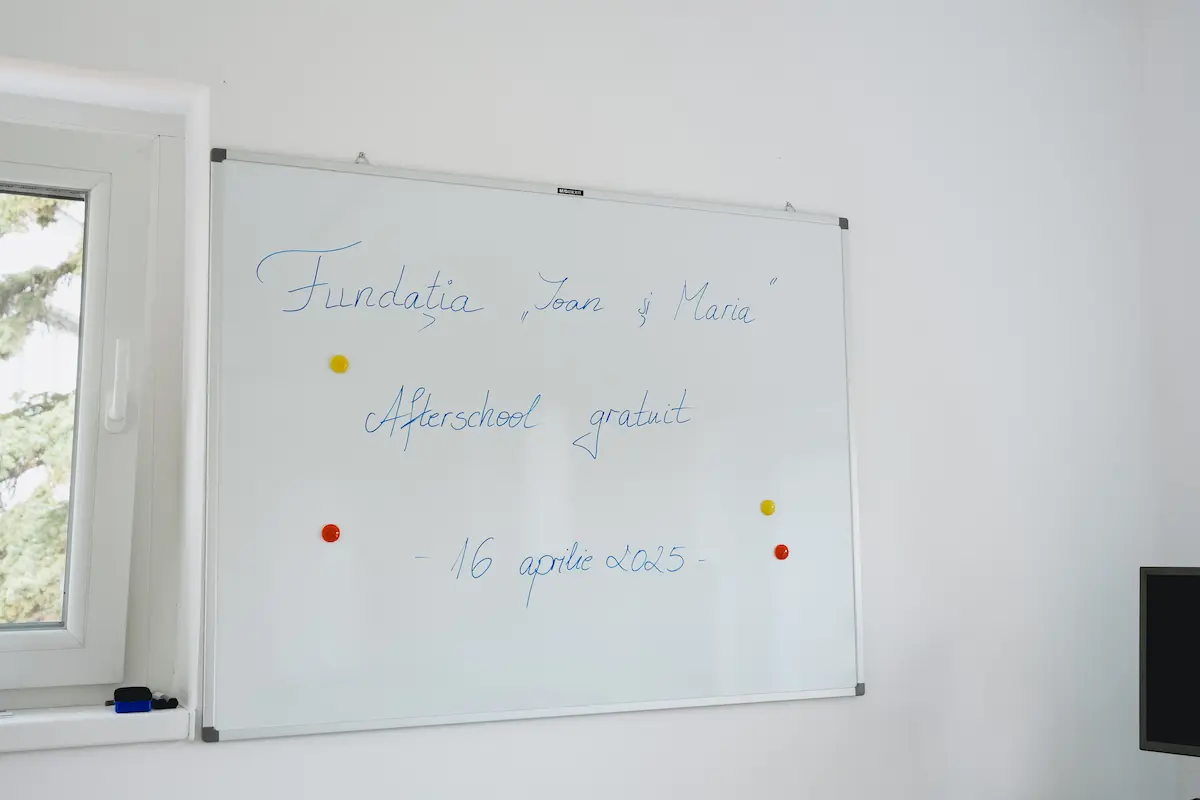 Fundația „Ioan și Maria”
Afterschool gratuit
- 16 aprilie 2025 -